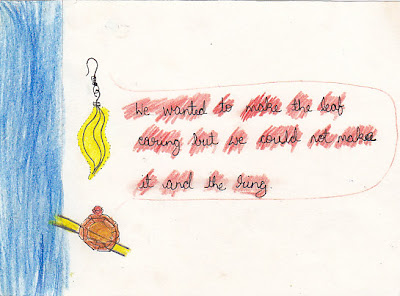 We wanted to make the leaf
earing but we could not make
it and the ring.